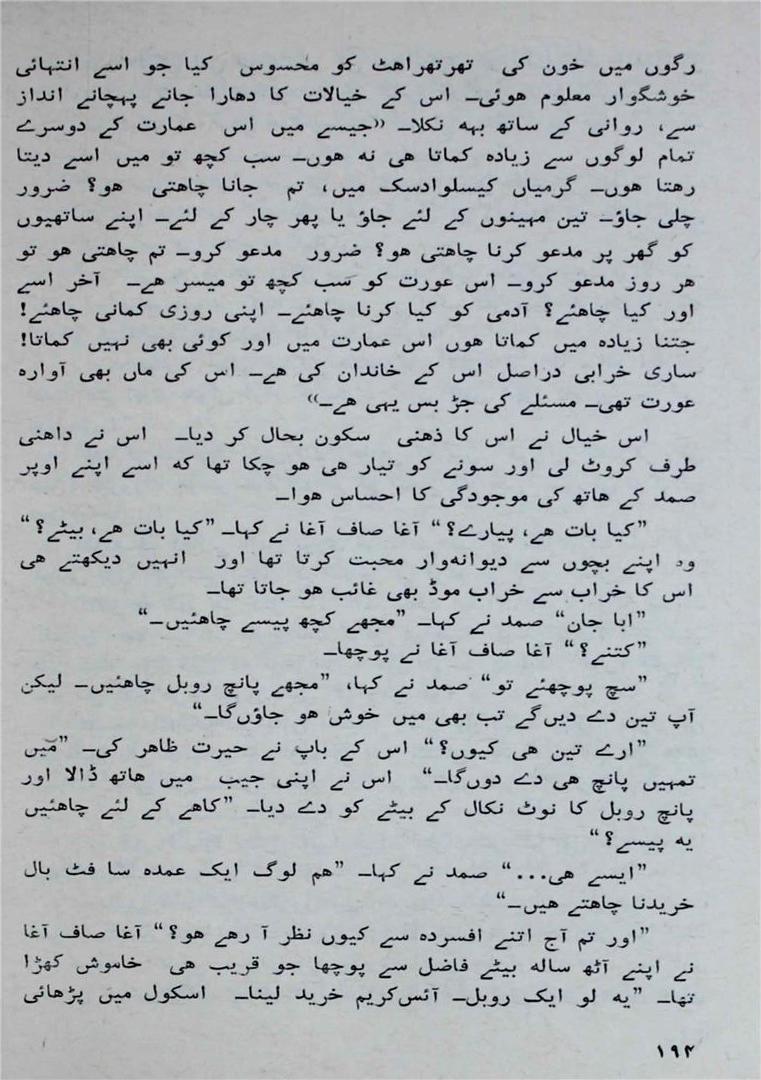 رگوں میں خون کی تھرتھراھٹ کو محسوس کیا جو اسے انتہائی
خوشگوار معلوم ھوئی۔ اس کے خیالات کا دھارا جانے پہچانے انداز
سے، روانی کے ساتھ بہہ نکلا۔ «جیسے میں اس عمارت کے دوسرے
تمام لوگوں سے زیادہ کماتا ھی نہ ھوں۔ سب کچھ تو میں اسے دیتا
رھتا ھوں۔ گرمیاں کیسلوادسک میں، تم جانا چاھتی ھو؟ ضرور
چلی جاؤ۔ تین مہینوں کے لئے جاؤ یا پھر چار کے لئے۔ اپنے ساتھیوں
کو گھر پر مدعو کرنا چاھتی ھو؟ ضرور مدعو کرو۔ تم چاھتی ھو تو
ھر روز مدعو کرو۔ اس عورت کو سب کچھ تو میسر ھے۔ آخر اسے
اور کیا چاھئے؟ آدمی کو کیا کرنا چاھئے۔ اپنی روزی کمانی چاھئے!
جتنا زیادہ میں کماتا ھوں اس عمارت میں اور کوئی بھی نہیں کماتا!
ساری خرابی دراصل اس کے خاندان کی ھے۔ اس کی ماں بھی آوارہ
عورت تھی۔ مسئلے کی جڑ بس یہی ھے۔»
اس خیال نے اس کا ذھنی سکون بحال کر دیا۔ اس نے داھنی
طرف کروٹ لی اور سونے کو تیار ھی ھو چکا تھا کہ اسے اپنے اوپر
صمد کے ھاتھ کی موجودگی کا احساس ھوا۔
”کیا بات ھے، پیارے؟“ آغا صاف آغا نے کہا۔ ”کیا بات ھے، بیٹے؟“
وہ اپنے بچوں سے دیوانہ‌وار محبت کرتا تھا اور انہیں دیکھتے ھی
اس کا خراب سے خراب موڈ بھی غائب ھو جاتا تھا۔
”ابا جان“ صمد نے کہا۔ ”مجھے کچھ پیسے چاھئیں۔“
”کتنے؟“ آغا صاف آغا نے پوچھا۔
”سچ پوچھئے تو“ صمد نے کہا، ”مجھے پانچ روبل چاھئیں۔ لیکن
آپ تین دے دیں‌گے تب بھی میں خوش ھو جاؤں‌گا۔“
”ارے تین ھی کیوں؟“ اس کے باپ نے حیرت ظاھر کی۔ ”میں
تمہیں پانچ ھی دے دوں‌گا۔“ اس نے اپنی جیب میں ھاتھ ڈالا اور
پانچ روبل کا نوٹ نکال کے بیٹے کو دے دیا۔ ”کاھے کے لئے چاھئیں
یہ پیسے؟“
”ایسے ھی...“ صمد نے کہا۔ ”ھم لوگ ایک عمدہ سا فٹ بال
خریدنا چاھتے ھیں۔“
”اور تم آج اتنے افسردہ سے کیوں نظر آ رھے ھو؟“ آغا صاف آغا
نے اپنے آٹھ سالہ بیٹے فاضل سے پوچھا جو قریب ھی خاموش کھڑا
تھا۔ ”یہ لو ایک روبل۔ آئس‌کریم خرید لینا۔ اسکول میں پڑھائی
۱۹۴